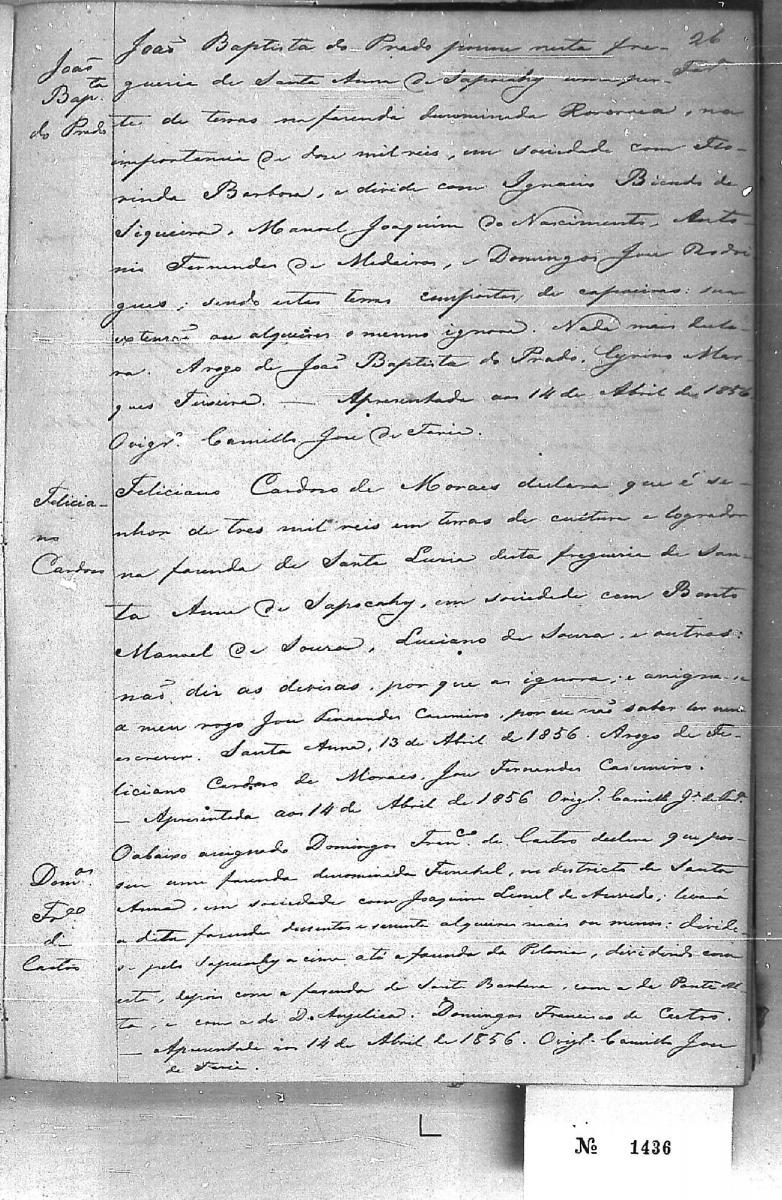 26
João
Bap.ta
do Prado
João Baptista do Prado possue nesta fre-
guesia de Santa Anna de Sapocahy uma par-
te de terras na fazenda denominada, na
importancia de dose mil reis, em sociedade com Flo-
rinda Barbosa, e divide com Ignacio Bicudo de
Siqueira, Manoel Joaquim do Nascimento, Anto-
nio Fernandes de Medeiros, e Domingos Jose Rodri
gues; sendo estas terras compostas de capoeiras: sua
extensão ou alqueires o mesmo ignora. Nada mais decla-
ra. Arogo de João Baptista do Prado, Cyrino Mar-
ques Teixeira. — Apresentada aos 14 de Abril de 1856
O vigr.º Camillo Jose de Faria.
Felicia-
no
Cardoso
Feliciano Cardoso de Moraes declara que é se-
nhor de tres mil reis em terras de cultura e logrador
na fazenda de Santa Luzia desta freguesia de San-
ta Anna de Sapocahy, em sociedade com Bento
Manoel de Souza, Luciano de Souza, e outros:
não diz as devisas, por que as ignora; e assigna-se
a meu rogo Jose Fernandes Casemiro, por eu não saber ler nem
escrever. Santa Anna, 13 de Abril de 1856. Arogo de Fe-
liciano Cardoso de Moraes, Jose Fernandes Casemiro.
— Apresentada aos 14 de Abril de 1856 O vigr.º Camillo J.e de Far.ª
Dom.os
Fr.co
de
Castro
O abaixo assignado Domingos Fran.co de Castro declara que pos-
sue uma fazenda denominada Funchal, no districto de Santa
Anna, em sociedade com Joaquim Leonel de Azevedo; levará
a dita fazenda dusentos e sesenta alqueires mais ou menos: divide-
se pelo Sapucahy a cima até a fazenda da, dividindo com
esta, depois com a fazenda de Santa Barbara, com a de Ponte al-
ta, e com a de D. Angelica. Domingos Francisco de Castro.
— Apresentada aos 14 de Abril de 1856. O vigr.º Camillo Jose
de Faria.
Nº 1436